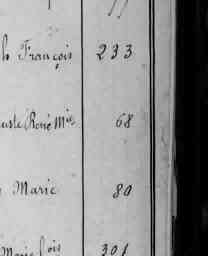 h François 233
uste René Mie 68
Marie 80
Marie Cois 301